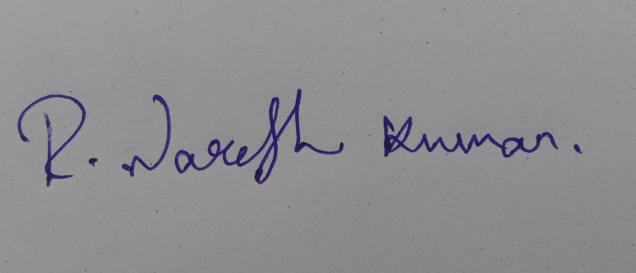 R. Naresh Kumar.